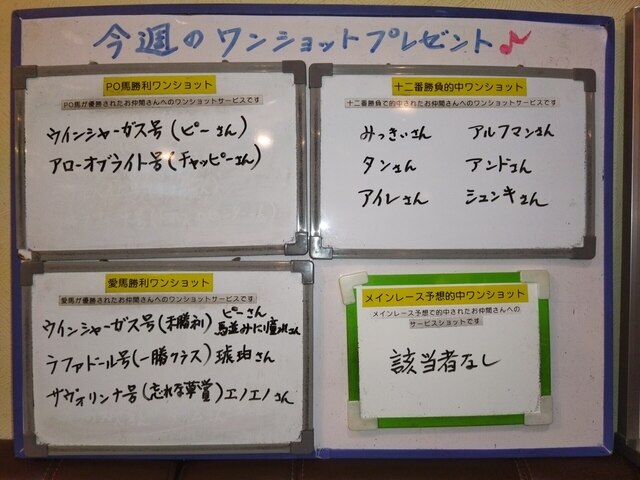 今週のワンショットプレゼント
PO馬勝利ワンショット
PO馬が優勝されたお仲間さんへのワンショットサービスです
ウインシャーガス号(ピーさん)
アローオブライト号(チャッピーさん)
十二番勝負的中ワンショット
十二番勝負で的中されたお仲間さんへのワンショットサービスです
みっきぃさん アルフマンさん
タンさん アンドさん
アイレさん シュンキさん
愛馬勝利ワンショット
愛馬が優勝されたお仲間さんへのワンショットサービスです
ピーさん
ウインシャーガス号(未勝利) 馬並みにさん
ラファドール号(一勝クラス)琥珀さん
サヴォリンナ号(忘れな草賞)エノエノさん
メインレース予想的中ワンショット
メインレース予想で的中されたお仲間さんへの
サービスショットです
該当者なし